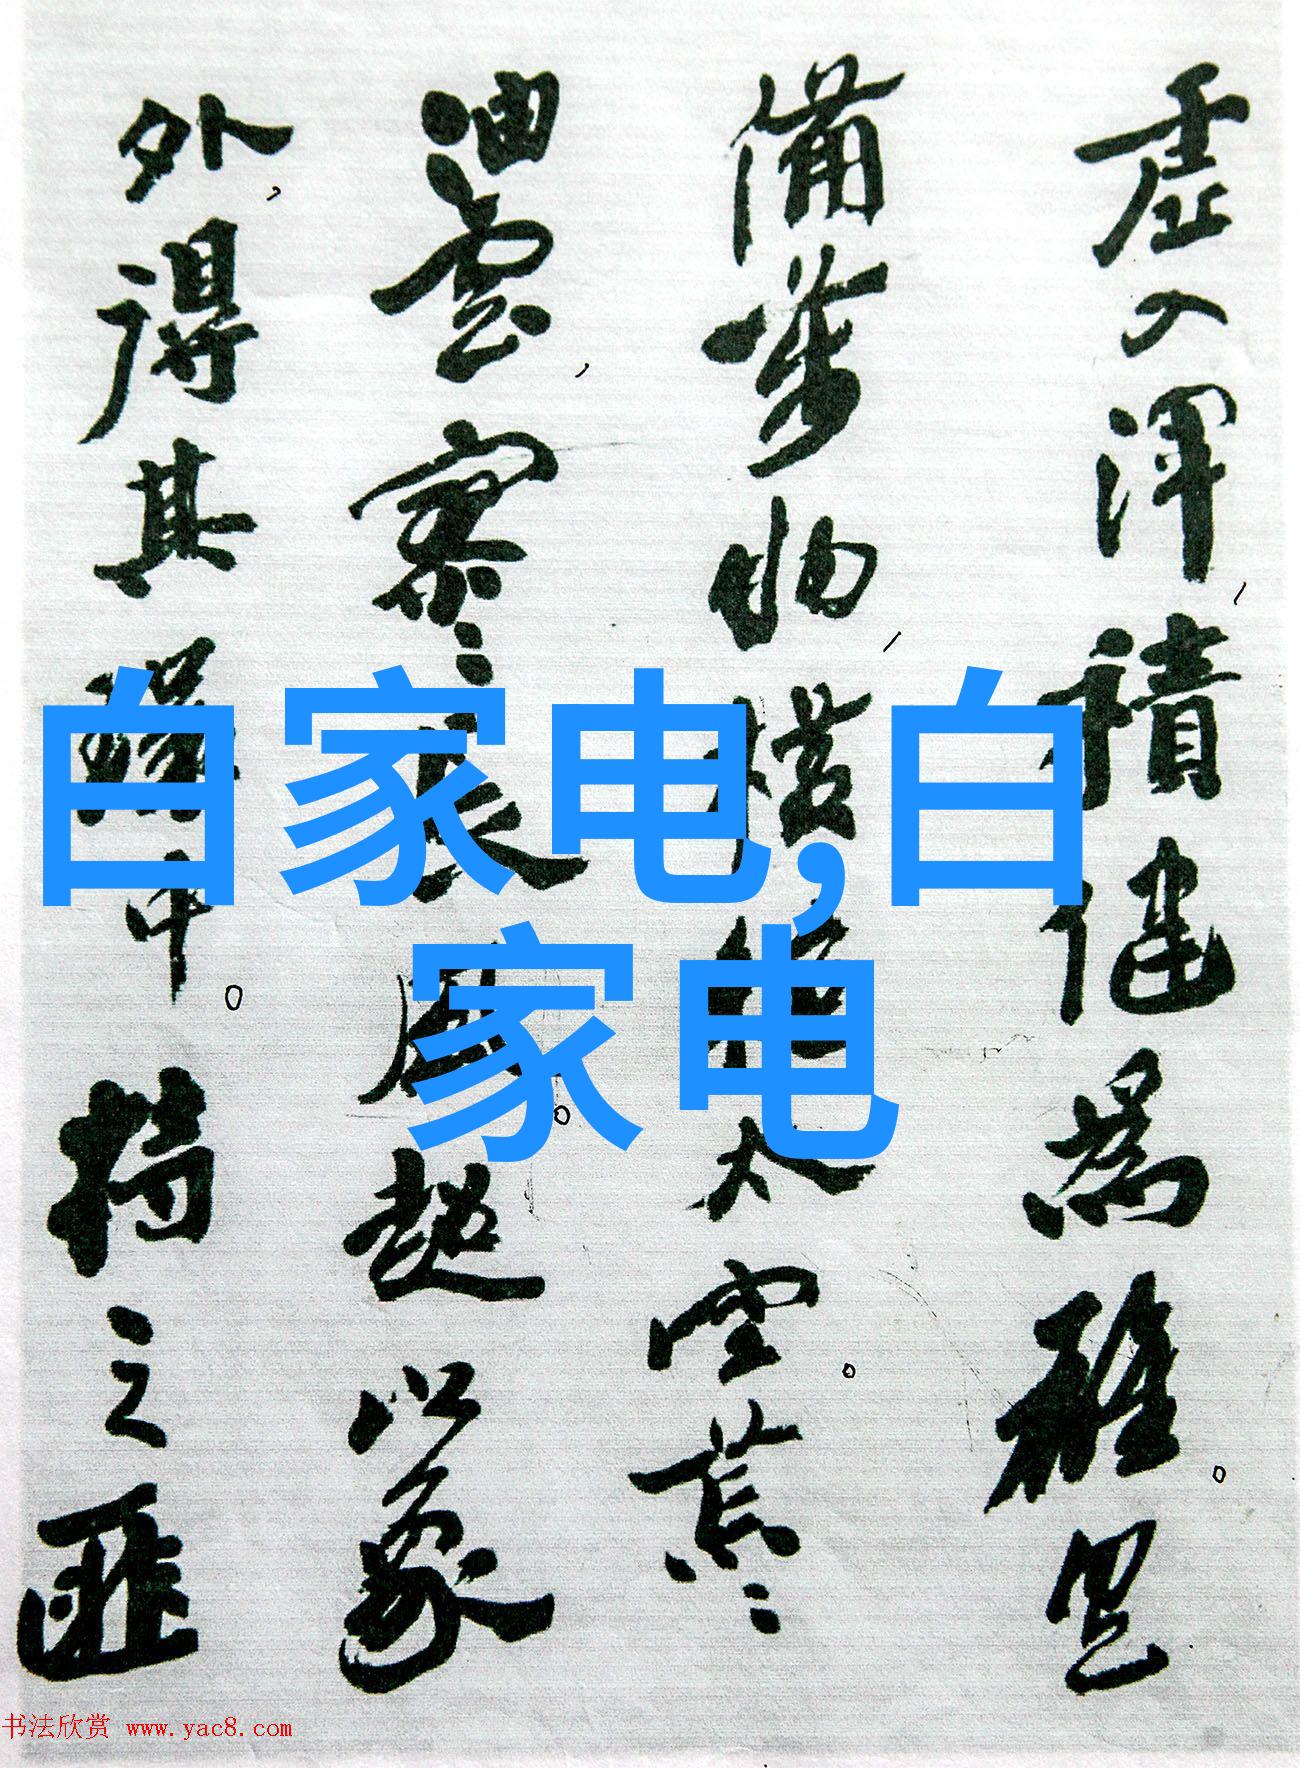 虛入渾,積健為雄。具
備萬物,橫絕太空。荒〻
油雲,寥〻長風。超以象
外,得其環中。持之匪
白家电,白
家电
书法欣赏 www.yac8.com